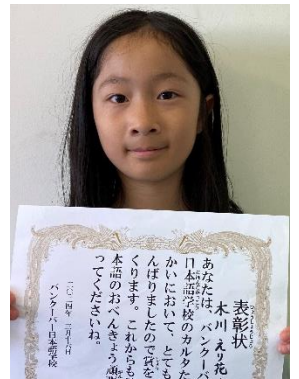 表彰状
木川 えり花
あなたは、バンクーバ
日本語学校のカルタた
かいにおいて、とても
んばりましたので賞を
くります。これからも
本語のおべんきょう頑
ってくださいね。
二月十六日
バンクーバー日本語学校